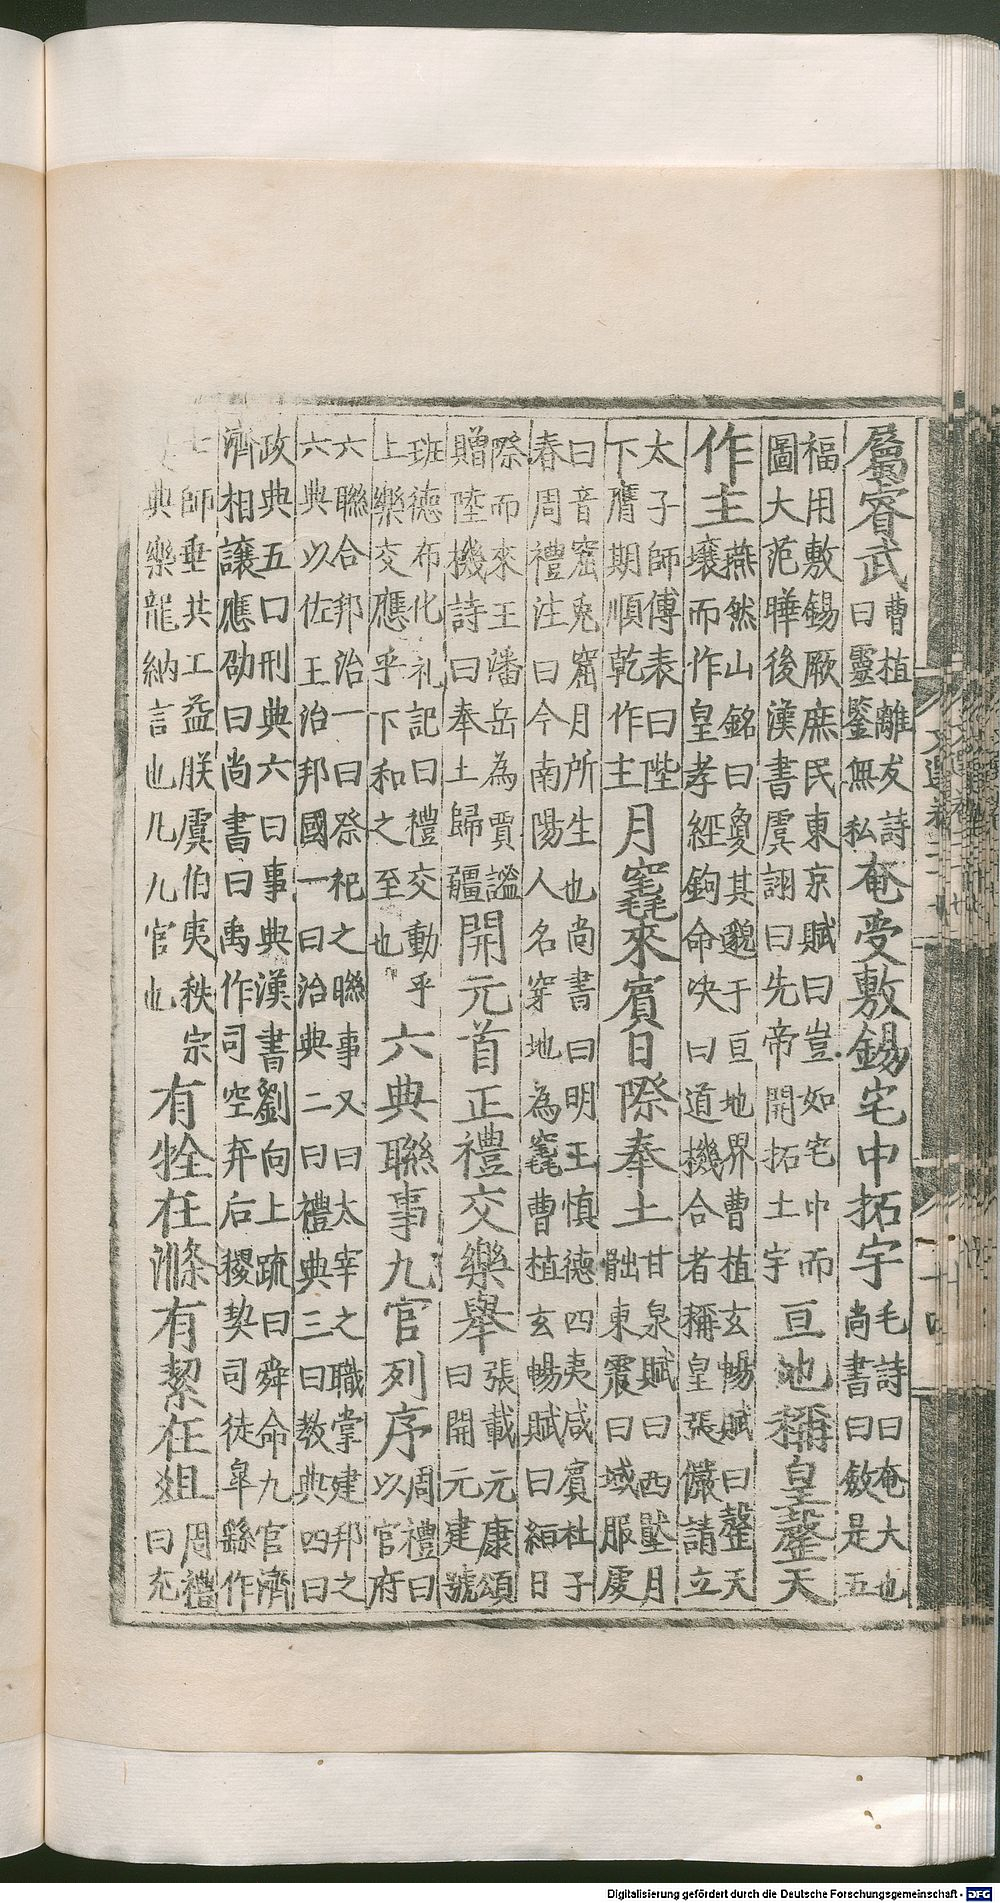 屬睿武曹植離友詩曰靈鑒無私奄受敷錫宅中拓宇毛詩曰奄大也尚書曰斂是五
福用敷錫厥庶民東京賦曰豈如宅中而圖大范曄後漢書虞詡曰先帝開拓土宇亘地稱皇罄天
作主燕然山銘曰夐其邈于亘地界曹植玄暢賦曰罄天壤而作皇孝經鉤命決曰道機合者稱皇張儼請立
太子師傅表曰陛下膺期順乾作主月竁來賓日際奉土甘泉賦曰西壓月䠳東震日域服虔
曰音窟兎窟月所生也尚書曰明王慎德四夷咸賓杜子春周禮注曰今南陽人名穿地為竁曹植玄暢賦曰絙日
際而來王潘岳為賈謐贈陸機詩曰奉土歸疆開元首正禮交樂舉張載元康頌曰開元建號
班德布化礼記曰禮交動乎上樂交應乎下和之至也六典聯事九官列序周禮曰以官府
六聯合邦治一曰祭祀之聯事又曰太宰之職掌建邦之六典以佐王治邦國一曰治典二曰禮典三曰教典四曰
政典五曰刑典六曰事典漢書劉向上疏曰舜命九官濟濟相讓應劭曰尚書曰禹作司空弃后稷契司徒皐繇作
士師垂共工益朕虞伯夷秩宗典樂龍納言也凡九官也有牷在滌有絜在俎周禮曰充
Digitalisierung gefördert durch die Deutsche Forschungsgemeinschaft - DFG